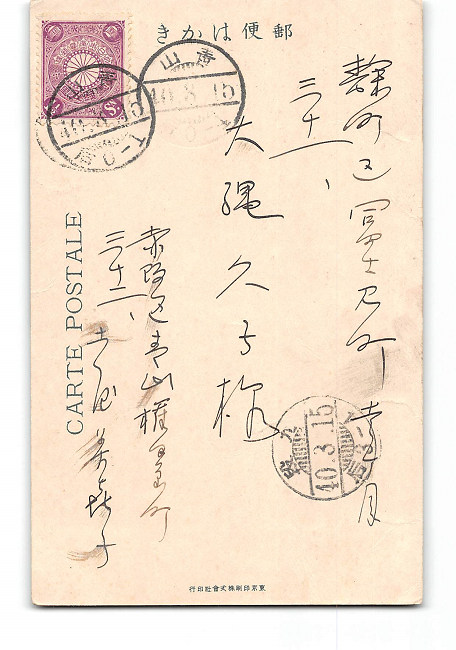 郵便はかき
麹町区富士見町壱丁目
三十一、
大縄久子様
赤坂区青山権田原町
三十二、
CARTE POSTALE
青山
40.3.15
青山
40.3.15
40.3.15
東京印刷株式會社印行